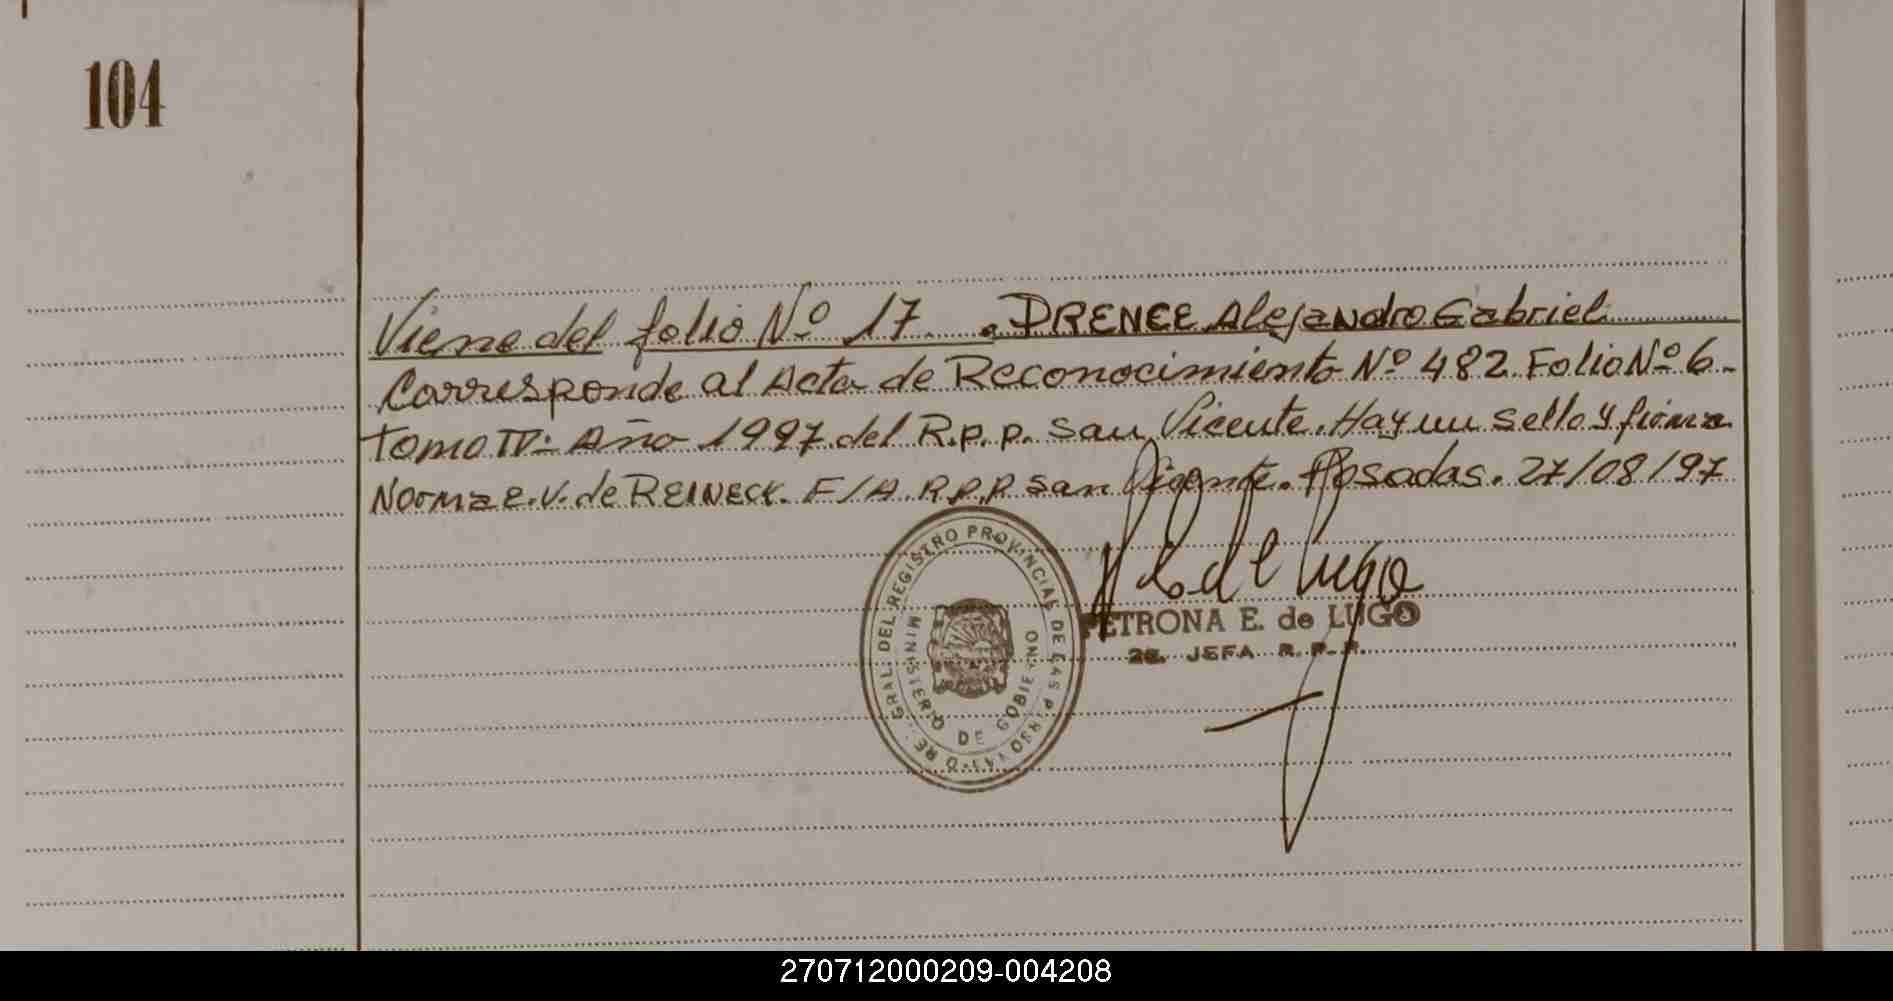 104
Viene del folio Nº 17. DRENCE Alejandro Gabriel
Corresponde al Acta de Reconocimiento Nº 482 Folio Nº 6-
Tomo IV: Año 1997 del R.P.P. San Vicente. Hay un sello y firma
Norma E. V. de REINECK. F/A. R.P.P. San Vicente. Posadas. 27/08/97
GRAL. DEL REGISTRO PROVINCIAL DE LAS PERSONAS
MINISTERIO DE GOBIERNO
PETRONA E. de LUGO
2a. JEFA R. P. P.
270712000209-004208